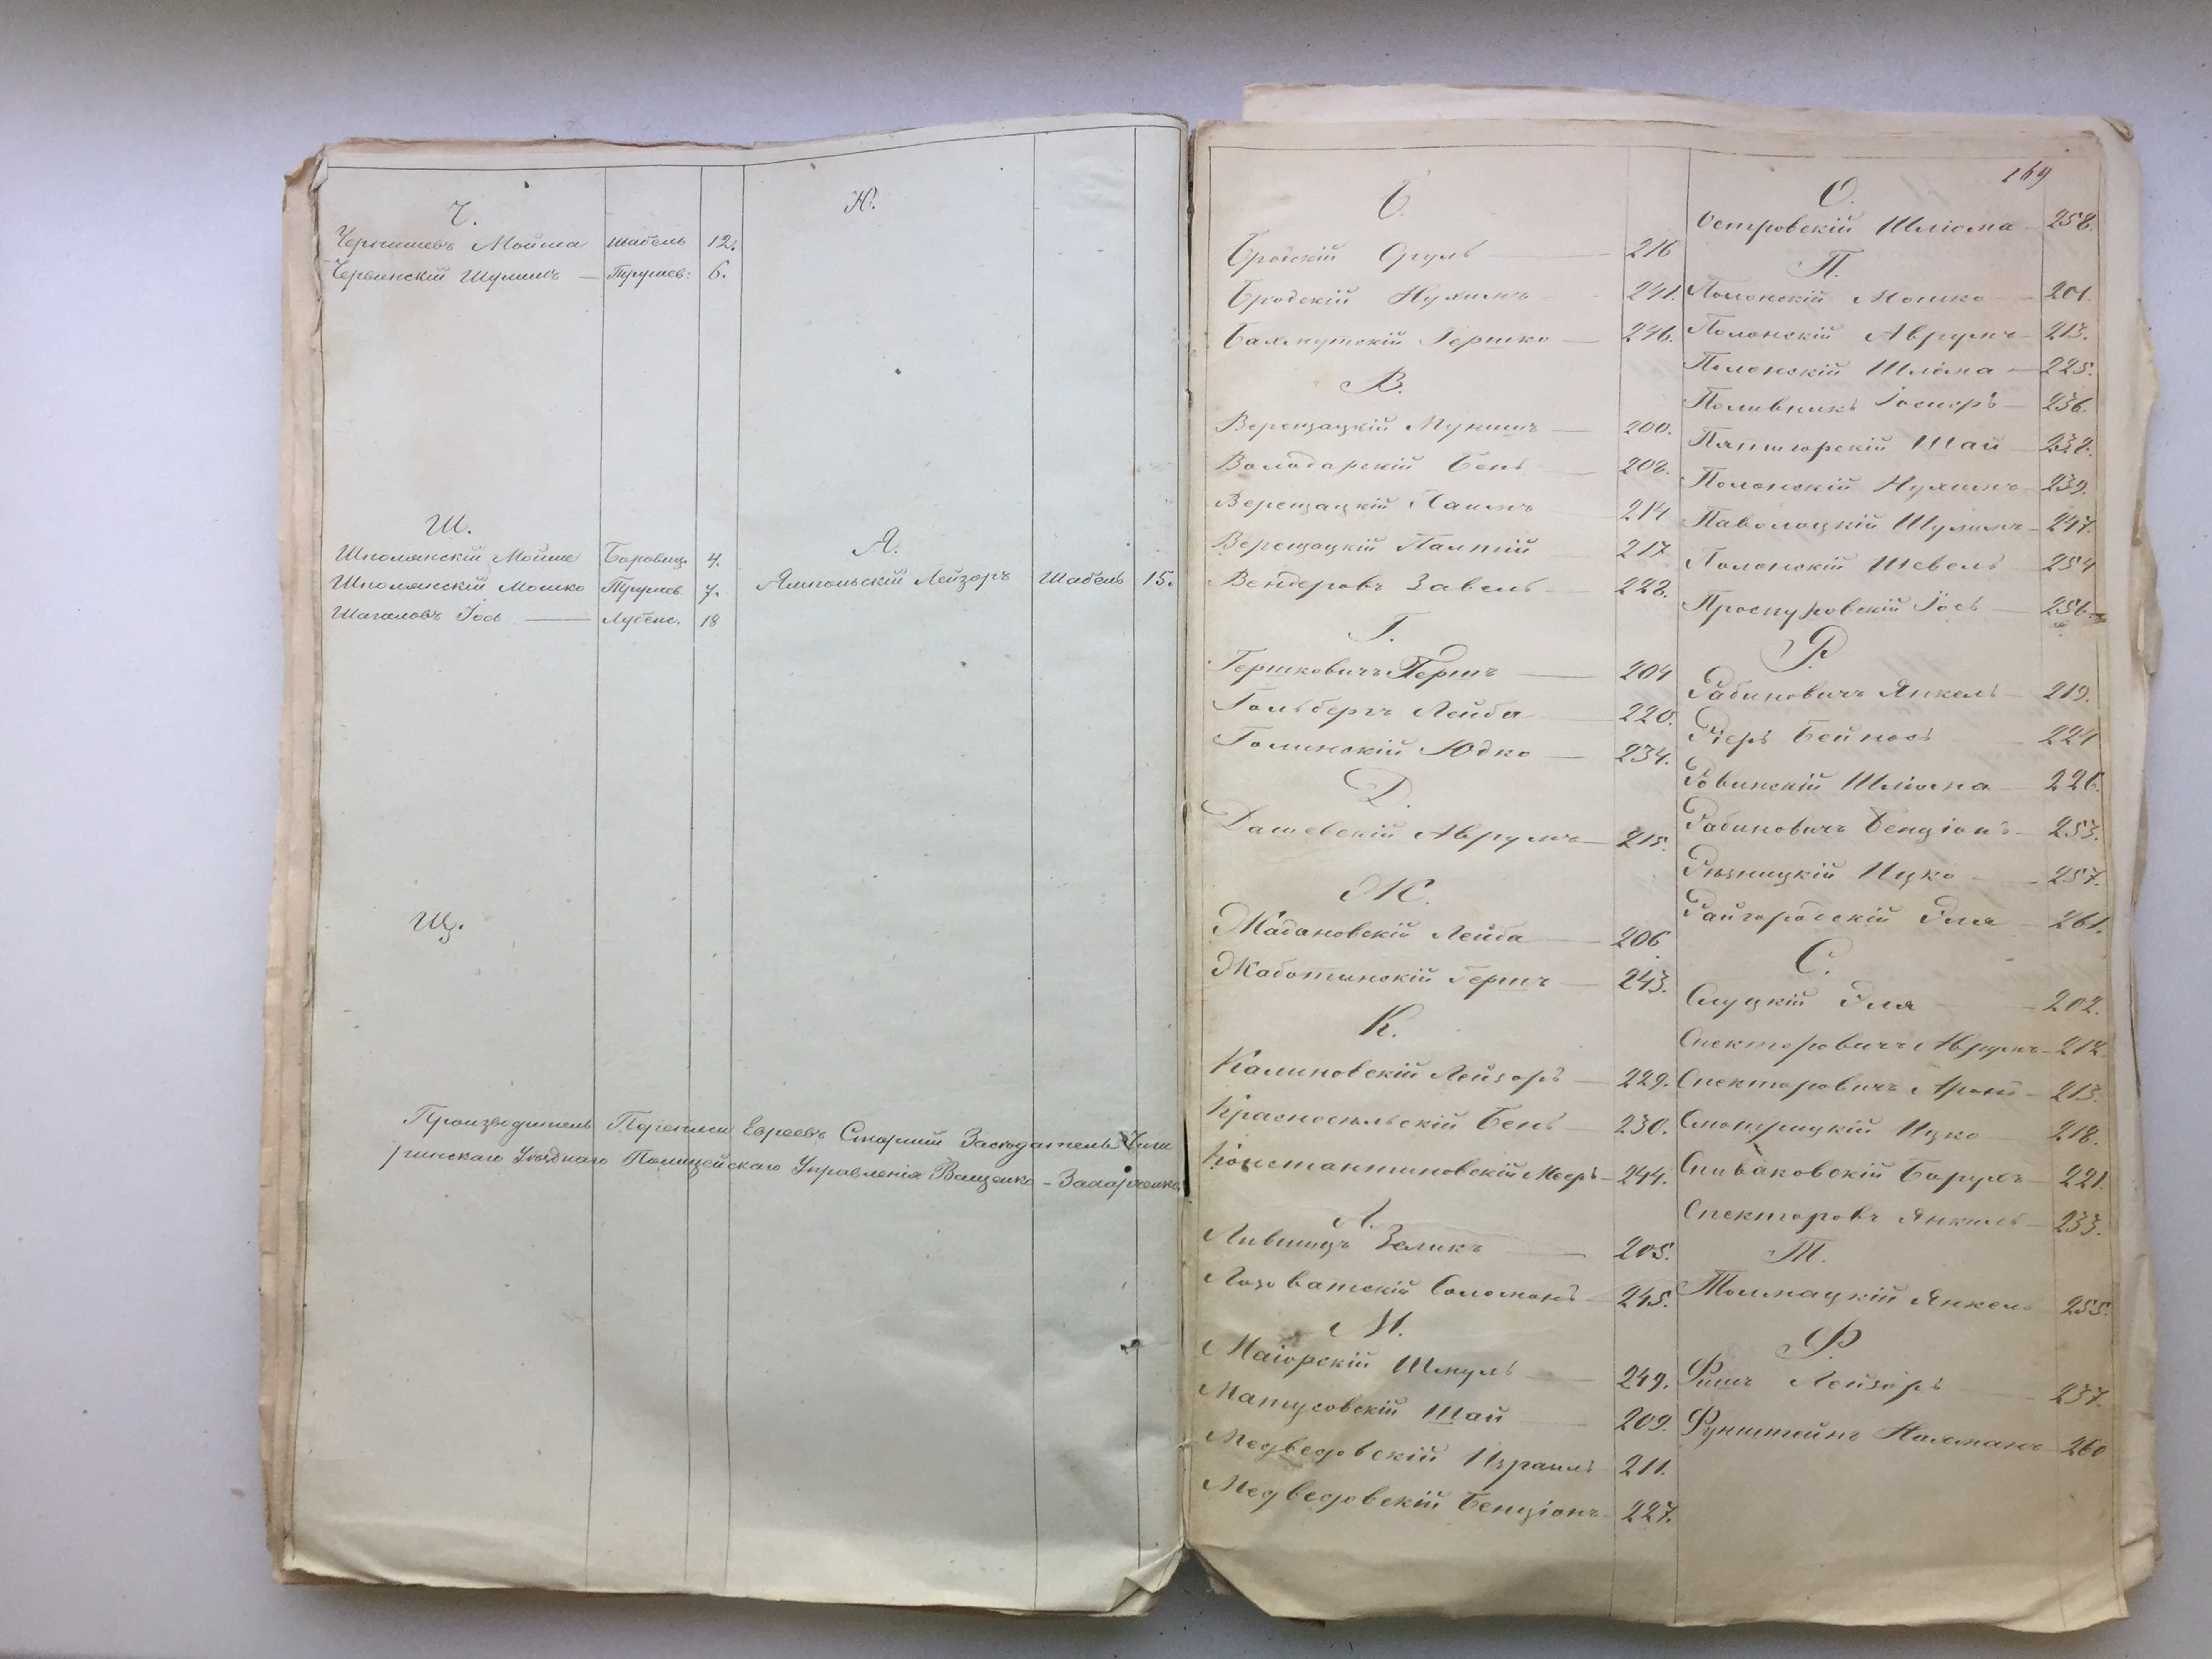 Ч.
Чернишевъ Мойша Шабель 12.
Червинскій Шулимъ — Трушев: 6.
Ш.
Шполянскій Мойше Боровиц. 4.
Шполянскій Мошко Трушев 7.
Шагаловъ Іось — Лубенс. 18
Щ.
Ю.
Я.
Ямпольскій Лейзоръ Шабель 15.
Производитель Переписи Евреевъ Старшій Засѣдатель Чиги
ринскаго Уѣзднаго Полицейскаго Управленія Ващенко-Захарченко
169
Б.
Бродскій Сруль — 216
Бродскій Нухимъ — 241.
Бахмутскій Гершко — 246.
В.
Верещацкій Мункишъ — 200.
Володарскій Бень — 208.
Верещацкій Хаимъ 214
Верещацкій Палтій 217
Вендеровъ Завель — 228.
Г.
Гершковичъ Гершъ — 204
Гольбергъ Лейба — 220.
Голинскій Юдко — 234.
Д.
Дашевскій Аврумъ — 215.
Ж.
Жадановскій Лейба — 206
Жаботинскій Гершъ — 243.
К.
Калиновскій Лейзоръ — 229.
Красносельскій Бень — 230.
Константиновскій Мееръ — 244.
Л.
Лившицъ Зеликъ — 205.
Лозоватскій Соломонъ — 245.
М.
Маіорскій Шмуль — 249.
Матусовскій Шай — 209.
Медведовскій Израиль 211.
Медведовскій Бенціонъ 227.
О.
Островскій Шліома — 258.
П.
Полонскій Мошко — 201.
Полонскій Аврумъ — 213.
Полонскій Шліома — 225.
Поливникъ Іосиоръ — 236.
Пятигорскій Шай — 238.
Полонскій Нухимъ — 239.
Паволоцкій Шулимъ — 247.
Полонскій Шевель — 254
Проскуровскій Іось — 256.
Р.
Рабиновичъ Янкель — 219.
Рзеръ Бейнось — 224
Ровинскій Шліома — 226.
Рабиновичъ Бенціонъ — 253.
Рѣзницкій Ицко — 257.
Райгородскій Эля — 261.
С.
Слуцкій Эля — 202.
Спекторовичъ Аврумъ — 212.
Спекторовичъ Аронъ — 213.
Смотрицкій Ицко — 218.
Спиваковскій Барухъ — 221.
Спекторовъ Янкель — 233.
Т.
Толмацкій Янкель 255.
Ф.
Фишъ Лейзоръ — 237.
Фунштейнъ Нахманъ — 260